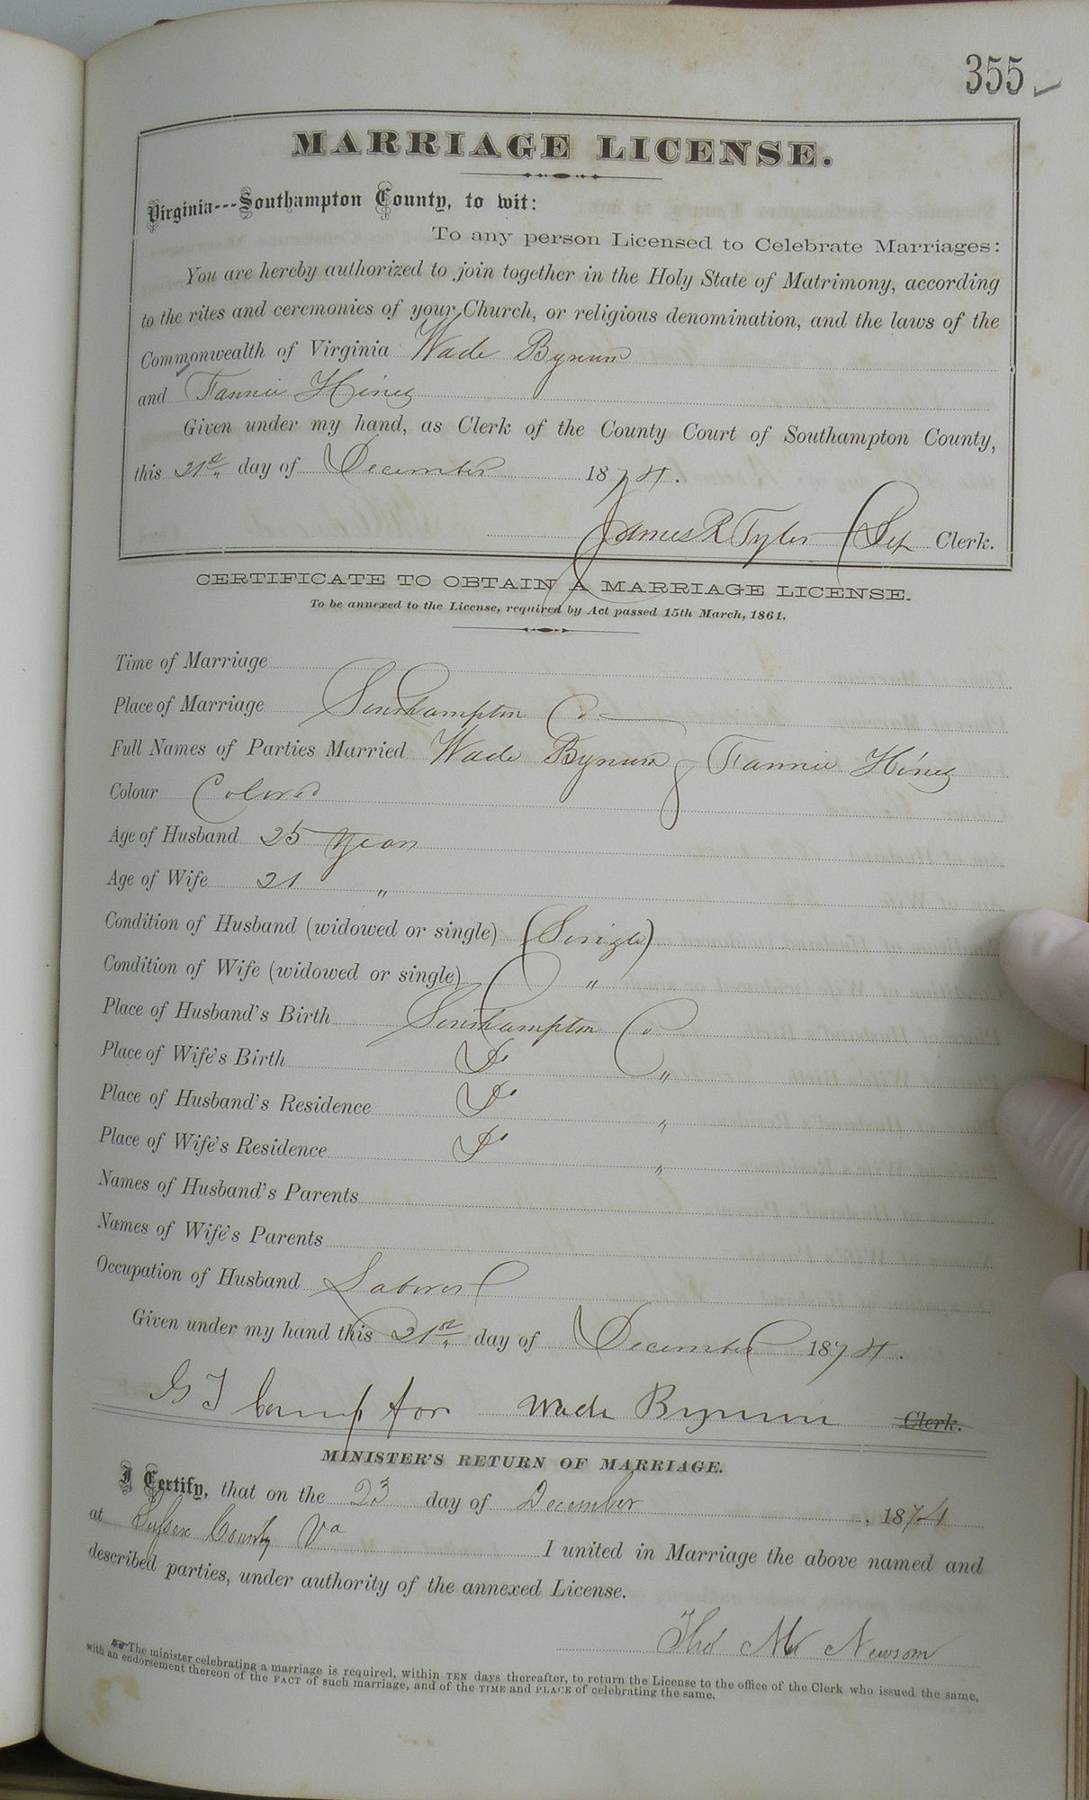 355
MARRIAGE LICENSE.
Virginia---Southampton County, to wit:
To any person Licensed to Celebrate Marriages:
You are hereby authorized to join together in the Holy State of Matrimony, according
to the rites and ceremonies of your Church, or religious denomination, and the laws of the
Commonwealth of Virginia Wade Bynum
and Fannie Hines
Given under my hand, as Clerk of the County Court of Southampton County,
this 21st day of December 1874.
James R Tyler Dep Clerk.
CERTIFICATE TO OBTAIN A MARRIAGE LICENSE.
To be annexed to the License, required by Act passed 15th March, 1861.
Time of Marriage
Place of Marriage Southampton Co
Full Names of Parties Married Wade Bynum & Fannie Hines
Colour Colored
Age of Husband 25 Years
Age of Wife 21 "
Condition of Husband (widowed or single) (Single)
Condition of Wife (widowed or single) "
Place of Husband's Birth Southampton Co
Place of Wife's Birth Do "
Place of Husband's Residence Do "
Place of Wife's Residence Do "
Names of Husband's Parents
Names of Wife's Parents
Occupation of Husband Laborer
Given under my hand this 21st day of December 1874.
G T Camp for Wade Bynum Clerk.
MINISTER'S RETURN OF MARRIAGE.
I Certify, that on the 23 day of December, 1874
at Sussex County Va I united in Marriage the above named and
described parties, under authority of the annexed License.
Newsom
The minister celebrating a marriage is required, within TEN days thereafter, to return the License to the office of the Clerk who issued the same,
with an endorsement thereon of the FACT of such marriage, and of the TIME and PLACE of celebrating the same.